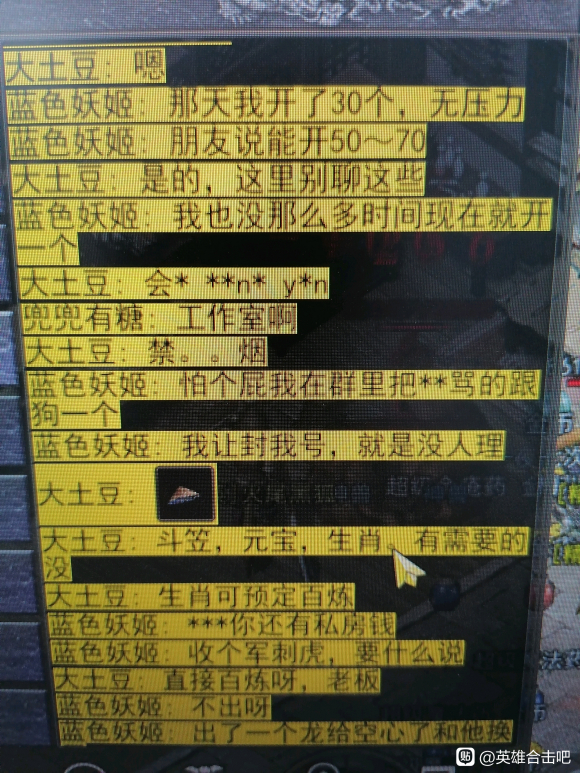 大土豆：嗯
蓝色妖姬：那天我开了30个，无压力
蓝色妖姬：朋友说能开50～70
大土豆：是的，这里别聊这些
蓝色妖姬：我也没那么多时间现在就开
一个
大土豆：会* **n* y*n
兜兜有糖：工作室啊
大土豆：禁。。烟
蓝色妖姬：怕个屁我在群里把**骂的跟
狗一个
蓝色妖姬：我让封我号，就是没人理
大土豆：
大土豆：斗笠，元宝，生肖，有需要的
没
大土豆：生肖可预定百炼
蓝色妖姬：***你还有私房钱
蓝色妖姬：收个军刺虎，要什么说
大土豆：直接百炼呀，老板
蓝色妖姬：不出呀
蓝色妖姬：出了一个龙给空心了和他换
贴 @英雄合击吧